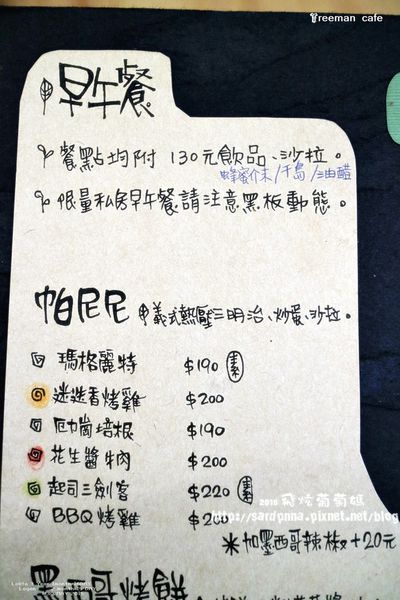 Treeman cafe
早午餐
餐點均附 130元飲品、沙拉。
蜂蜜芥末/千島/油醋
限量私房早午餐請注意黑板動態。
帕尼尼 義式熱壓三明治、炒蛋、沙拉。
瑪格麗特 $190 素
迷迭香烤雞 $200
厄崗培根 $190
花生醬牛肉 $200
起司三劍客 $220 素
BBQ烤雞 $200
2010 飛炫葡萄媽
http://sardonna.pixnet.net/blog
※加墨西哥辣椒+20元
墨西哥烤餅